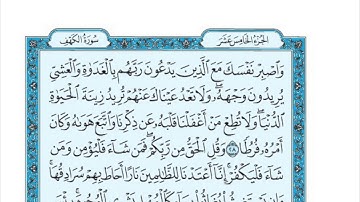 سُورَةُ الكَهْفِ
الجُزْءُ الخَامِسَ عَشَرَ
وَٱصْبِرْ نَفْسَكَ مَعَ ٱلَّذِينَ يَدْعُونَ رَبَّهُم بِٱلْغَدَوٰةِ وَٱلْعَشِيِّ
يُرِيدُونَ وَجْهَهُۥۖ وَلَا تَعْدُ عَيْنَاكَ عَنْهُمْ تُرِيدُ زِينَةَ ٱلْحَيَوٰةِ
ٱلدُّنْيَاۖ وَلَا تُطِعْ مَنْ أَغْفَلْنَا قَلْبَهُۥ عَن ذِكْرِنَا وَٱتَّبَعَ هَوَىٰهُ وَكَانَ
أَمْرُهُۥ فُرُطًا ٢٨ وَقُلِ ٱلْحَقُّ مِن رَّبِّكُمْۖ فَمَن شَآءَ فَلْيُؤْمِن وَمَن
شَآءَ فَلْيَكْفُرْۚ إِنَّآ أَعْتَدْنَا لِلظَّٰلِمِينَ نَارًا أَحَاطَ بِهِمْ سُرَادِقُهَاۚ